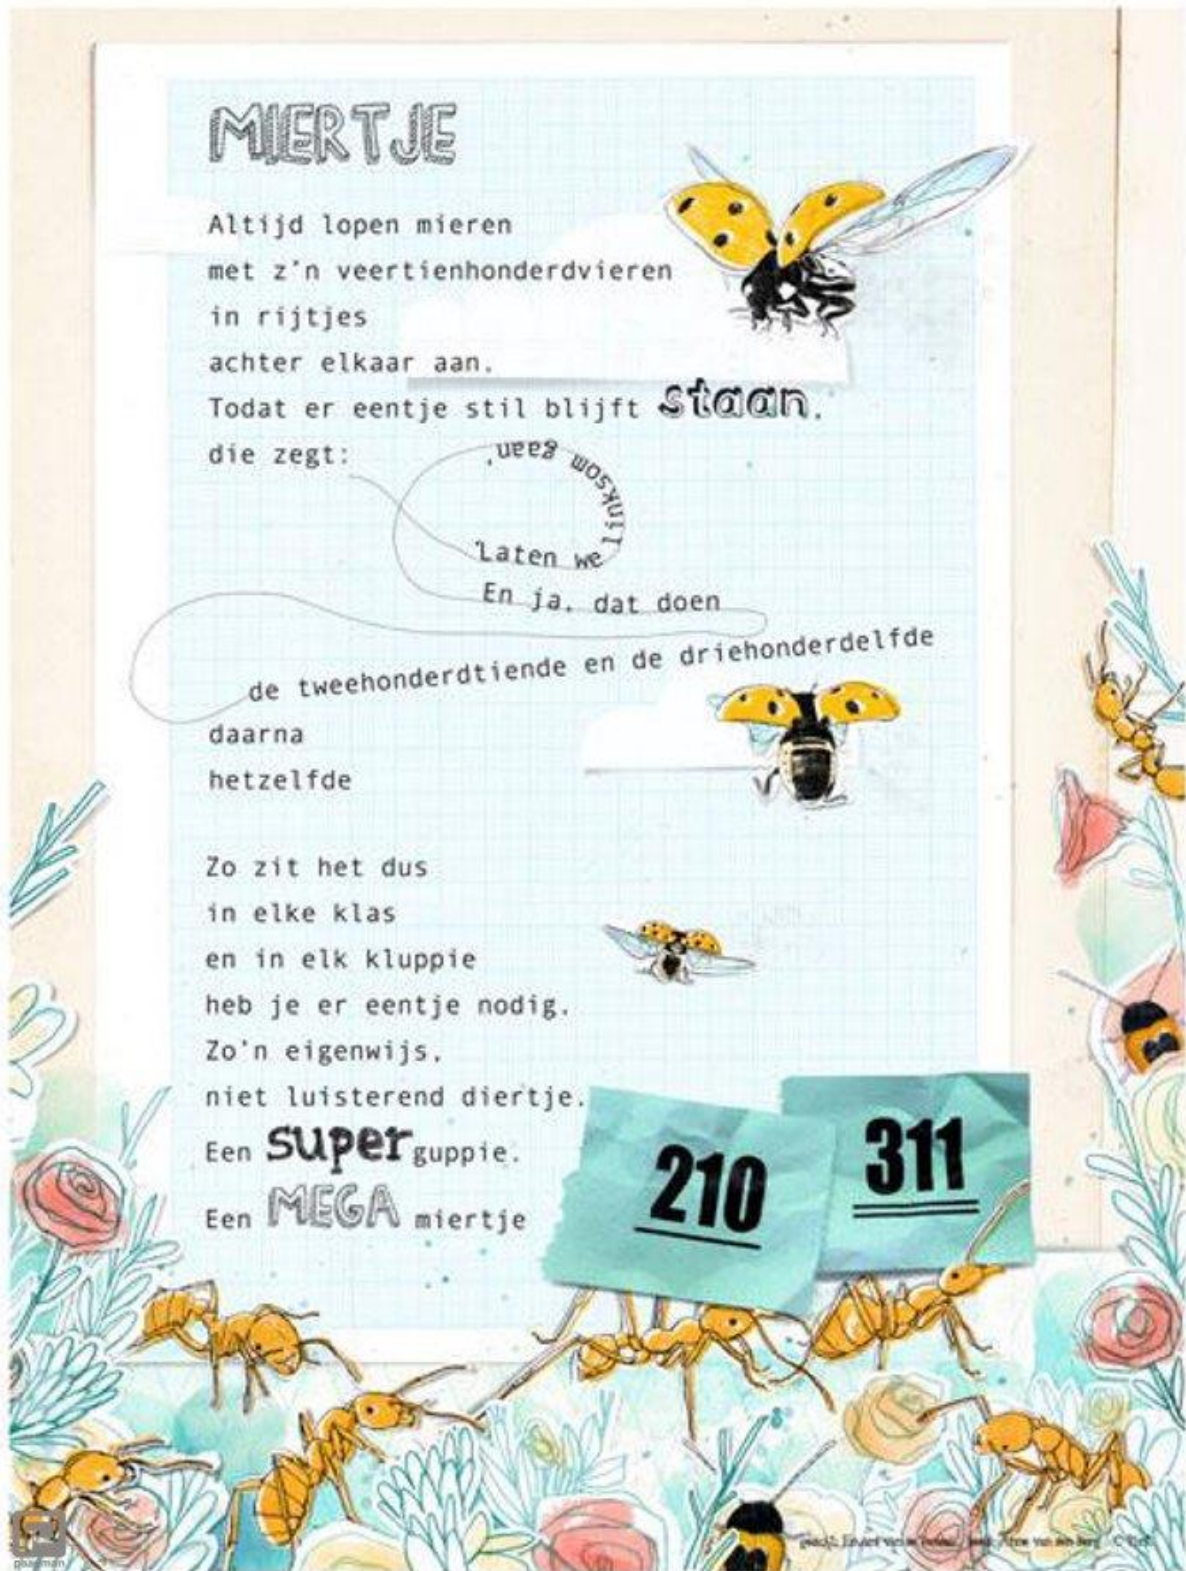 MIERTJE
Altijd lopen mieren
met z'n veertienhonderdvieren
in rijtjes
achter elkaar aan.
Todat er eentje stil blijft staan.
die zegt:
'Laten we linksom gaan.'
En ja, dat doen
de tweehonderdtiende en de driehonderdelfde
daarna
hetzelfde
Zo zit het dus
in elke klas
en in elk kluppie
heb je er eentje nodig.
Zo'n eigenwijs,
niet luisterend diertje.
Een super guppie.
Een MEGA miertje
210
311